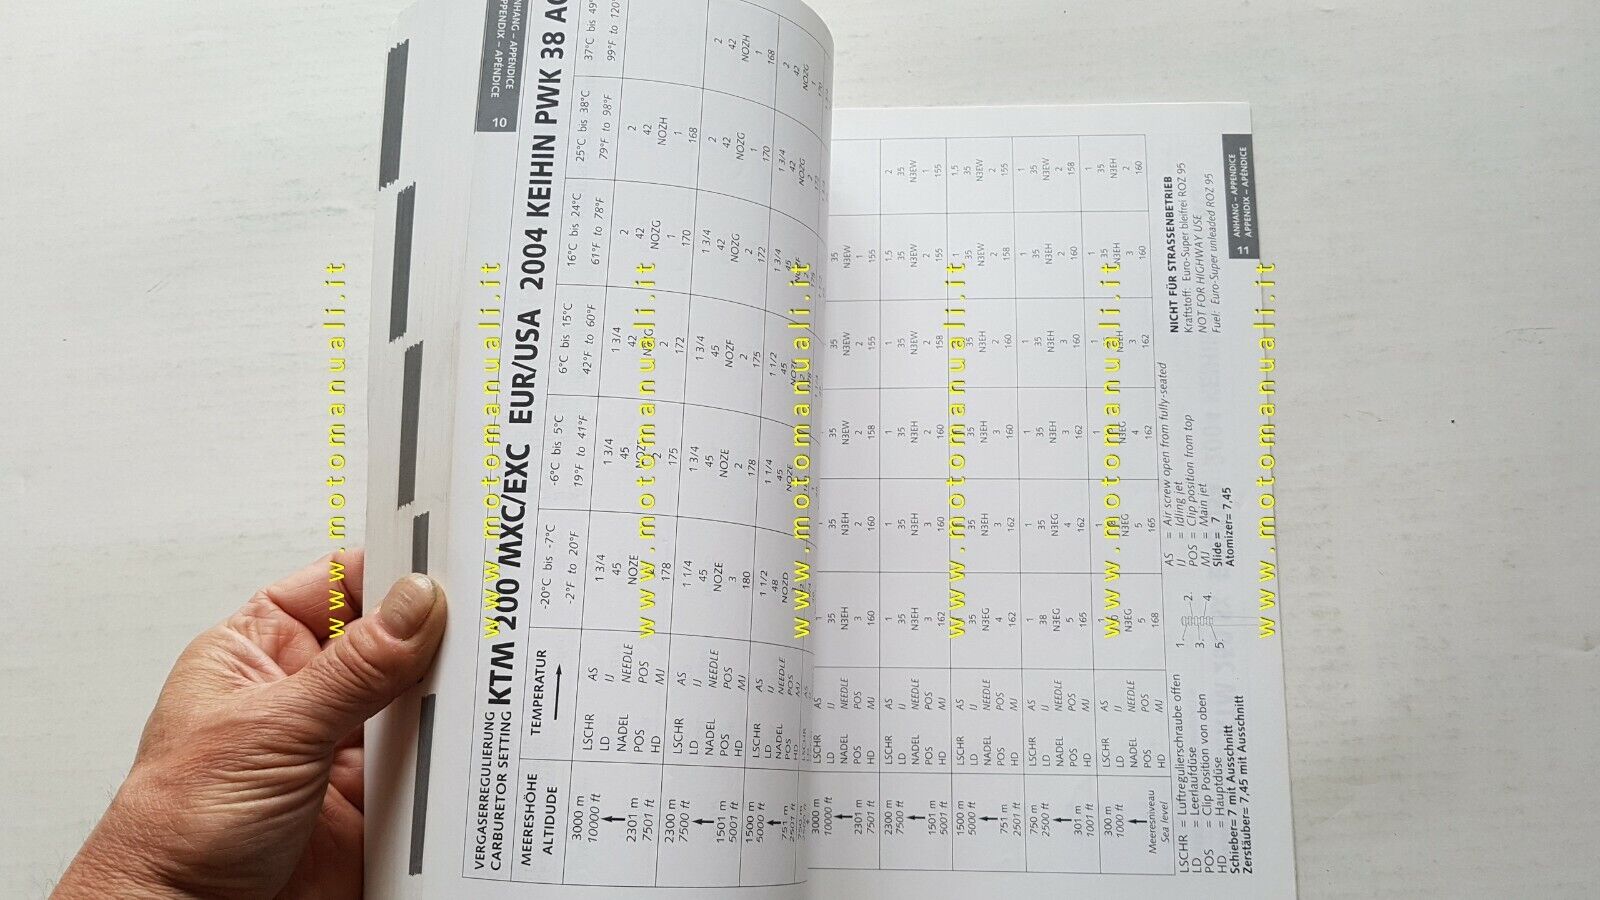 10
ANHANG – APPENDICE
APPENDIX – APÉNDICE
VERGASERREGULIERUNG
CARBURETOR SETTING
KTM 200 MXC/EXC EUR/USA 2004 KEIHIN PWK 38
MEERESHÖHE
ALTIDUDE
TEMPERATUR
-20°C bis -7°C
-2°F to 20°F
-6°C bis 5°C
19°F to 41°F
6°C bis 15°C
42°F to 60°F
16°C bis 24°C
61°F to 78°F
25°C bis 38°C
79°F to 98°F
37°C bis 49°
99°F to 120°
3000 m
10000 ft
2301 m
7501 ft
LSCHR AS 1 3/4 1 3/4 1 3/4 2 2
LD IJ 45 45 42 42 42
NADEL NEEDLE NOZE NOZG NOZH
POS POS 2 2 1 1
HD MJ 178 175 172 170 168
2300 m
7500 ft
1501 m
5001 ft
LSCHR AS 1 1/4 1 3/4 1 3/4 1 3/4 2 2
LD IJ 45 45 45 42 42 42
NADEL NEEDLE NOZE NOZE NOZF NOZG NOZG NOZH
POS POS 3 2 2 2 1 1
HD MJ 180 178 175 172 170 168
1500 m
5000 ft
751 m
2501 ft
LSCHR AS 1 1/2 1 1/4 1 1/2 1 3/4 1 3/4 2
LD IJ 48 45 45 45 42 42
NADEL NEEDLE NOZD NOZE NOZG NOZG
POS POS
HD MJ
3000 m
10000 ft
2301 m
7501 ft
LSCHR AS 1
LD IJ 35 35 35 35 35
NADEL NEEDLE N3EH N3EH N3EW N3EW N3EW
POS POS 3 2 2 2 1
HD MJ 160 160 158 155 155
2300 m
7500 ft
1501 m
5001 ft
LSCHR AS 1 1 1 1 1,5 2
LD IJ 35 35 35 35 35 35
NADEL NEEDLE N3EH N3EH N3EH N3EW N3EW N3EW
POS POS 3 3 2 2 2 1
HD MJ 162 160 160 158 155 155
1500 m
5000 ft
751 m
2501 ft
LSCHR AS 1 1,5
LD IJ 35 35 35 35 35 35
NADEL NEEDLE N3EG N3EH N3EH N3EH N3EW N3EW
POS POS 4 3 3 2 2 2
HD MJ 162 162 160 160 158 155
750 m
2500 ft
301 m
1001 ft
LSCHR AS 1 1 1 1 1 1
LD IJ 38 35 35 35 35 35
NADEL NEEDLE N3EG N3EG N3EH N3EH N3EH N3EW
POS POS 5 4 3 2 2 2
HD MJ 165 162 162 160 160 158
300 m
1000 ft
Meeresniveau
Sea level
LSCHR AS 1 1 1 1 1
LD IJ 35 35
NADEL NEEDLE N3EG N3EG N3EG N3EH N3EH N3EH
POS POS 5 5 4 3 3 2
HD MJ 168 165 162 162 160 160
LSCHR = Luftregulierschraube offen
LD = Leerlaufdüse
POS = Clip Position von oben
HD = Hauptdüse
Schieber= 7 mit Ausschnitt
Zerstäuber= 7,45 mit Ausschnitt
1. 2.
3. 4.
5.
AS = Air screw open from fully-seated
IJ = Idling jet
POS = Clip position from top
MJ = Main jet
Slide = 7
Atomizer= 7,45
NICHT FÜR STRASSENBETRIEB
Kraftstoff: Euro-Super bleifrei ROZ 95
NOT FOR HIGHWAY USE
Fuel: Euro-Super unleaded ROZ 95
11
ANHANG – APPENDICE
APPENDIX – APÉNDICE
www.motomanuali.it
www.motomanuali.it
www.motomanuali.it
www.motomanuali.it
www.motomanuali.it
www.motomanuali.it
www.motomanuali.it